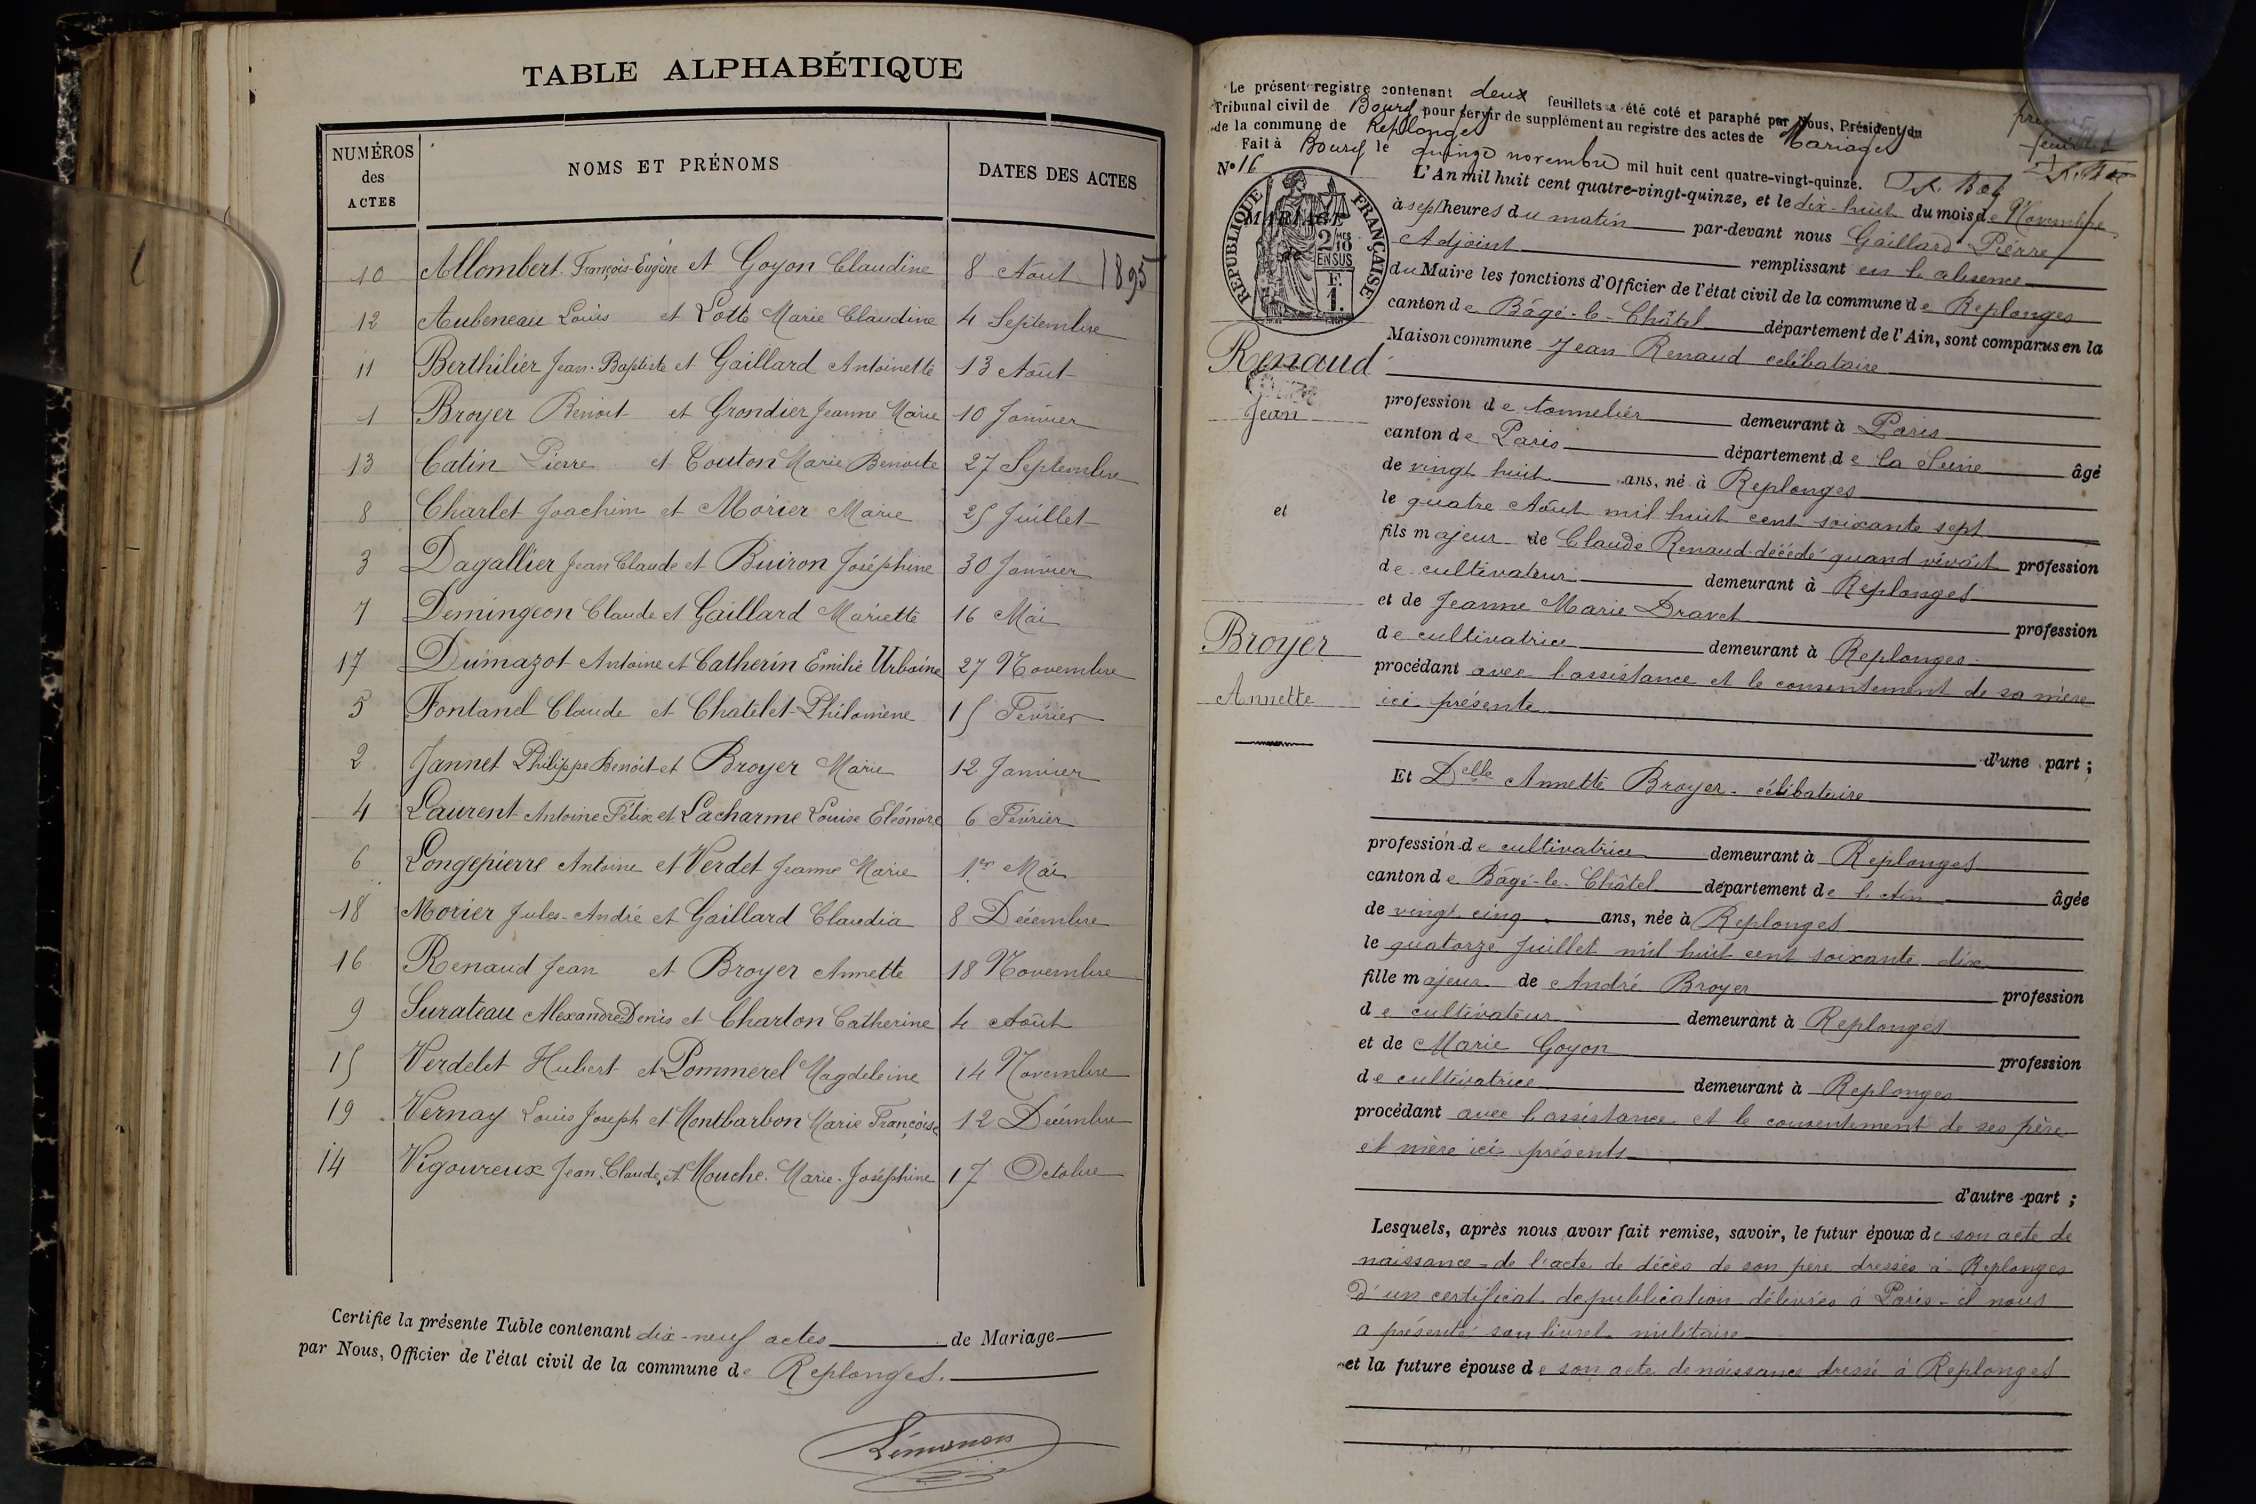 TABLE ALPHABÉTIQUE
NUMÉROS des ACTES
NOMS ET PRÉNOMS
DATES DES ACTES
10 Allombert François-Eugène et Goyon Claudine 8 Août 1895
12 Aubeneau Louis et Lotte Marie Claudine 4 Septembre
11 Berthilier Jean-Baptiste et Gaillard Antoinette 13 Août
1 Broyer Benoit et Grondier Jeanne Marie 10 Janvier
13 Catin Pierre et Couton Marie Benoite 27 Septembre
8 Charlet Joachim et Morier Marie 25 Juillet
3 Dagallier Jean Claude et Buiron Joséphine 30 Janvier
7 Demingeon Claude et Gaillard Mariette 16 Mai
17 Dumazot Antoine et Catherin Emilie Urbaine 27 Novembre
5 Fontanel Claude et Chatelet Philomène 15 Février
2 Jannet Philippe Benoit et Broyer Marie 12 Janvier
4 Laurent Antoine Félix et Lacharme Louise Eléonore 6 Février
6 Longepierre Antoine et Verdet Jeanne Marie 1er Mai
18 Morier Jules-André et Gaillard Claudia 8 Décembre
16 Renaud Jean et Broyer Annette 18 Novembre
9 Surateau Alexandre Denis et Charton Catherine 4 Août
15 Verdelet Hubert et Pommerel Magdeleine 14 Novembre
19 Vernay Louis Joseph et Montbarbon Marie Françoise 12 Décembre
14 Vigoureux Jean-Claude et Mouche Marie-Joséphine 17 Octobre
Certifie la présente Table contenant dix-neuf actes de Mariage
par Nous, Officier de l'état civil de la commune de Replonges.
Le présent registre contenant deux feuillets a été coté et paraphé par Nous, Président du
Tribunal civil de Bourg pour servir de supplément au registre des actes de Mariages
de la commune de Replonges
Fait à Bourg le quinze novembre mil huit cent quatre-vingt-quinze.
premier
feuillet
No 16
MARIAGE
RÉPUBLIQUE FRANÇAISE
2/10
EN SUS
F.
1.
Renaud
Jean
et
Broyer
Annette
L'An mil huit cent quatre-vingt-quinze, et le dix-huit du mois de Novembre
à sept heures du matin par-devant nous Gaillard Pierre
Adjoint remplissant en l'absence
du Maire les fonctions d'Officier de l'état civil de la commune de Replonges
canton de Bâgé-le-Châtel département de l'Ain, sont comparus en la
Maison commune Jean Renaud célibataire
profession de tonnelier demeurant à Paris
canton de Paris département de la Seine âgé
de vingt huit ans, né à Replonges
le quatre Août mil huit cent soixante sept
fils majeur de Claude Renaud décédé quand vivait profession
de cultivateur demeurant à Replonges
et de Jeanne Marie Dravet profession
de cultivatrice demeurant à Replonges
procédant avec l'assistance et le consentement de sa mère
ici présente
d'une part ;
Et Delle Annette Broyer célibataire
profession de cultivatrice demeurant à Replonges
canton de Bâgé-le-Châtel département de l'Ain âgée
de vingt cinq ans, née à Replonges
le quatorze Juillet mil huit cent soixante dix
fille majeur de André Broyer profession
de cultivateur demeurant à Replonges
et de Marie Goyon profession
de cultivatrice demeurant à Replonges
procédant avec l'assistance et le consentement de ses père
et mère ici présents
d'autre part ;
Lesquels, après nous avoir fait remise, savoir, le futur époux de son acte de
naissance - de l'acte de décès de son père dressés à Replonges
D'un certificat de publication délivrés à Paris - il nous
a présenté son livret militaire
et la future épouse de son acte de naissance dressé à Replonges